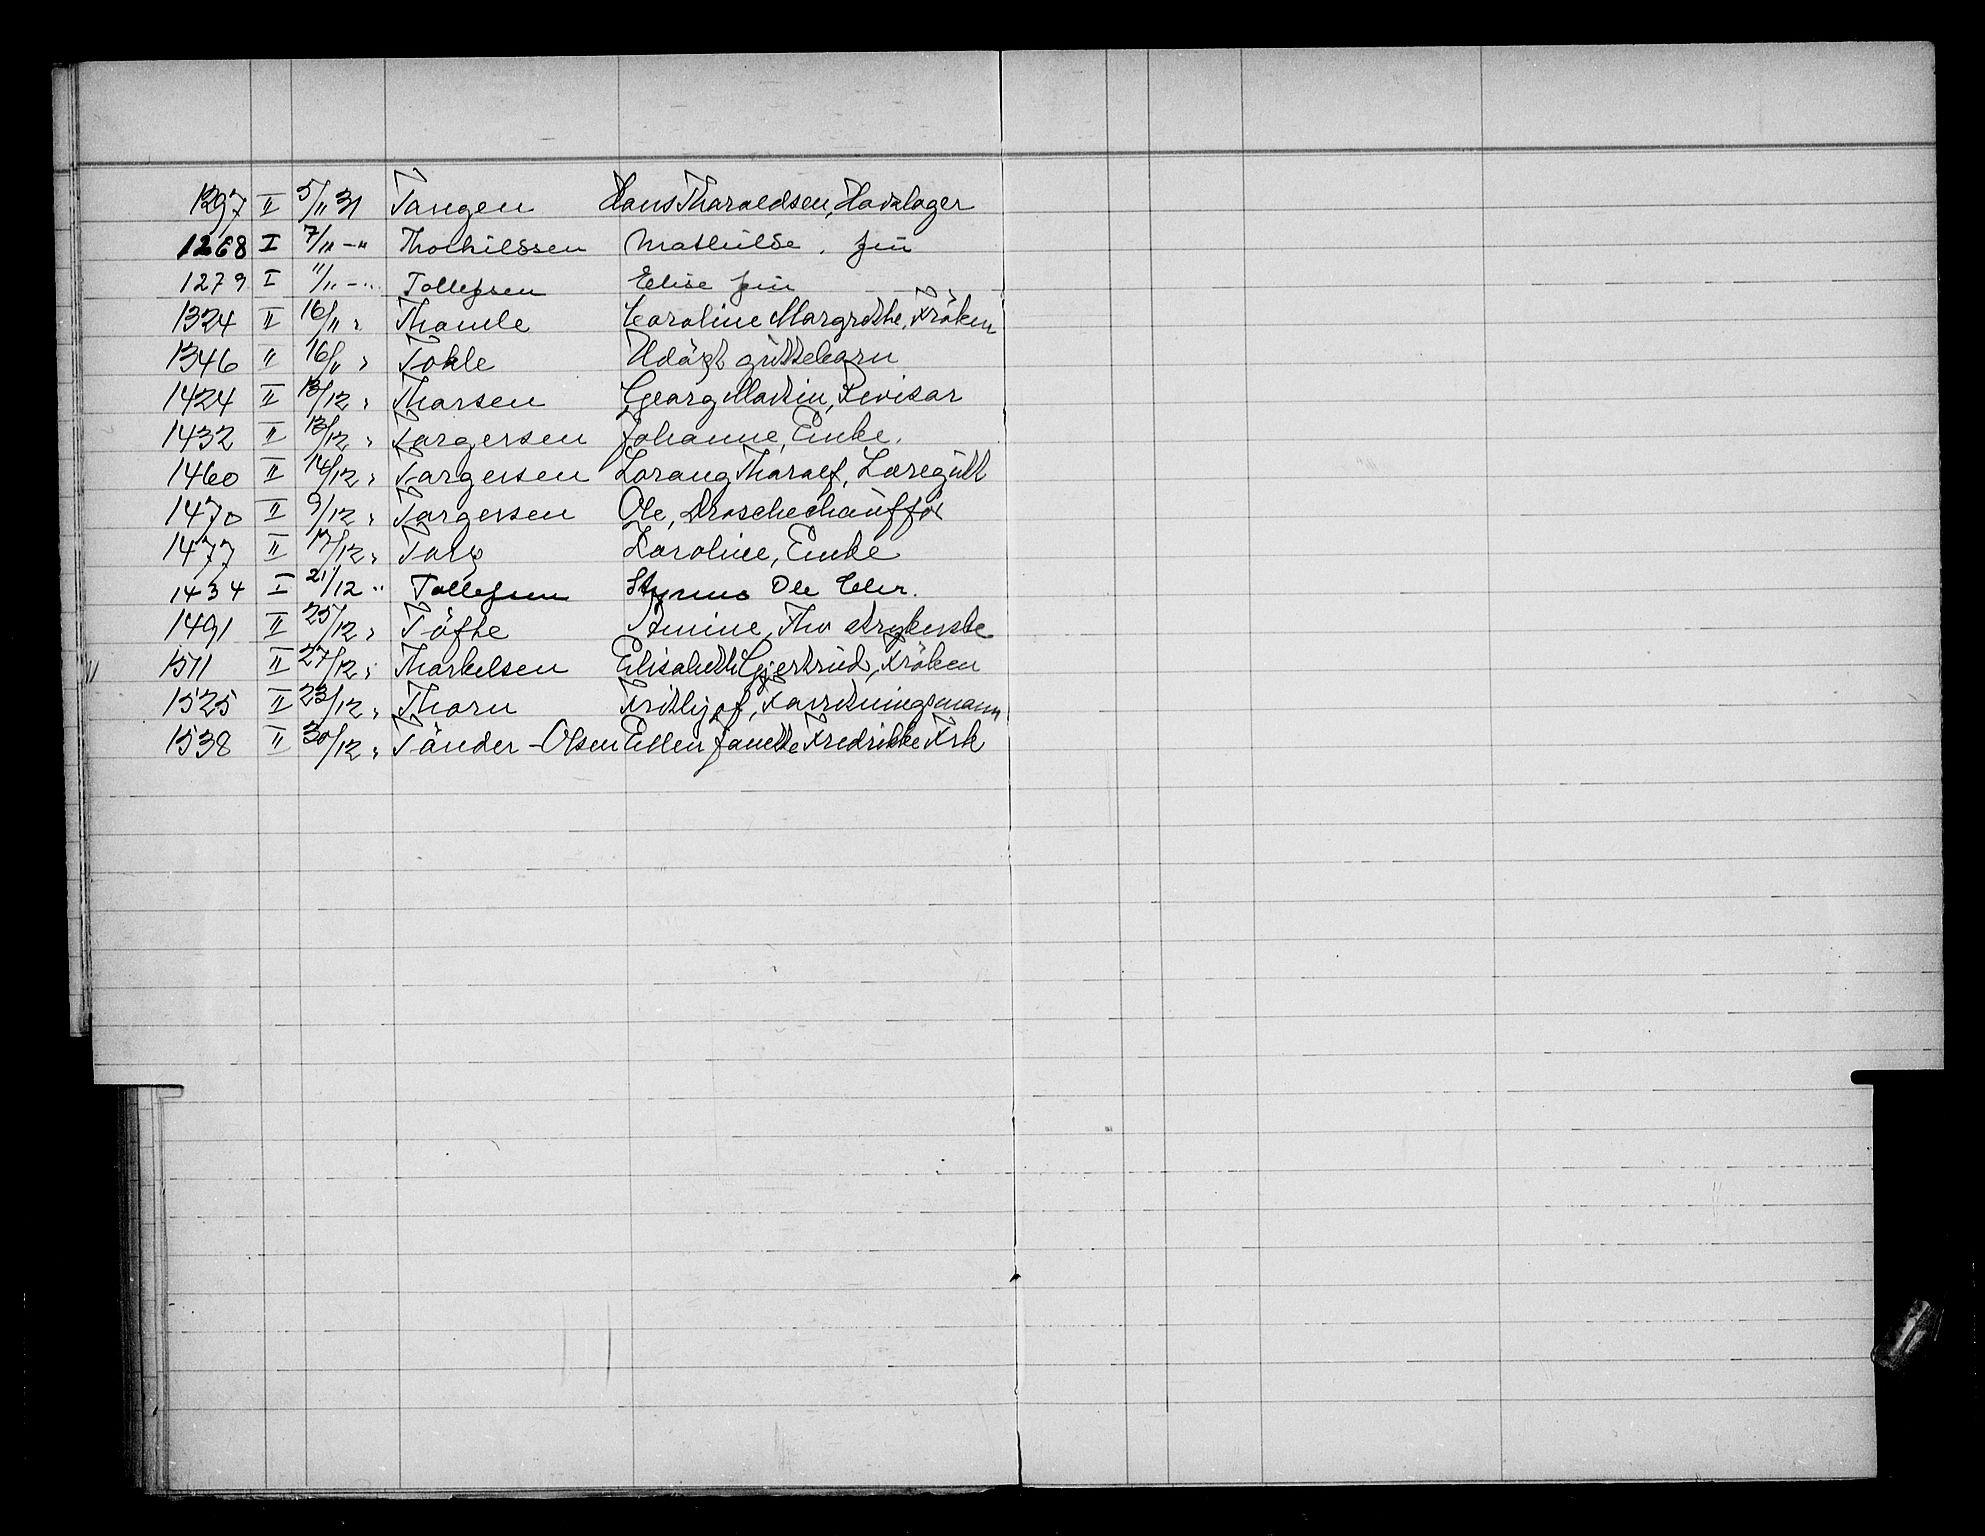 1297 II 5/11 31 Tangen Hans Tharaldsen, Havelager
1268 I 7/11 - " Thorkildsen Mathilde. frü
1279 I 11/11 - " Tollefsen Elise frü
1324 II 16/11 " Thomle Caroline Margrethe, Fröken
1346 " 16/11 " Tokle Udöpt guttebarn
1424 II 13/12 " Thorsen Georg Martin, Revisor
1432 II 13/12 " Torgersen Johanne, Enke.
1460 II 14/12 " Torgersen Lorang Tharalf, Læregütt
1470 II 9/12 " Torgersen Ole, Droschechaufför
1477 II 17/12 " Torp Karoline, Enke
1434 I 21/12 " Tollefsen Ole
1491 II 25/12 " Töfte Amine, Thv strykerske
1511 II 27/12 " Thorkelsen Elisabeth Gjertrud, Fröken
1525 II 23/12 " Thorn Frithjof, Forretningsmann
1538 II 30/12 " Tönder-Olsen Ellen Janette Fredrikke Frk